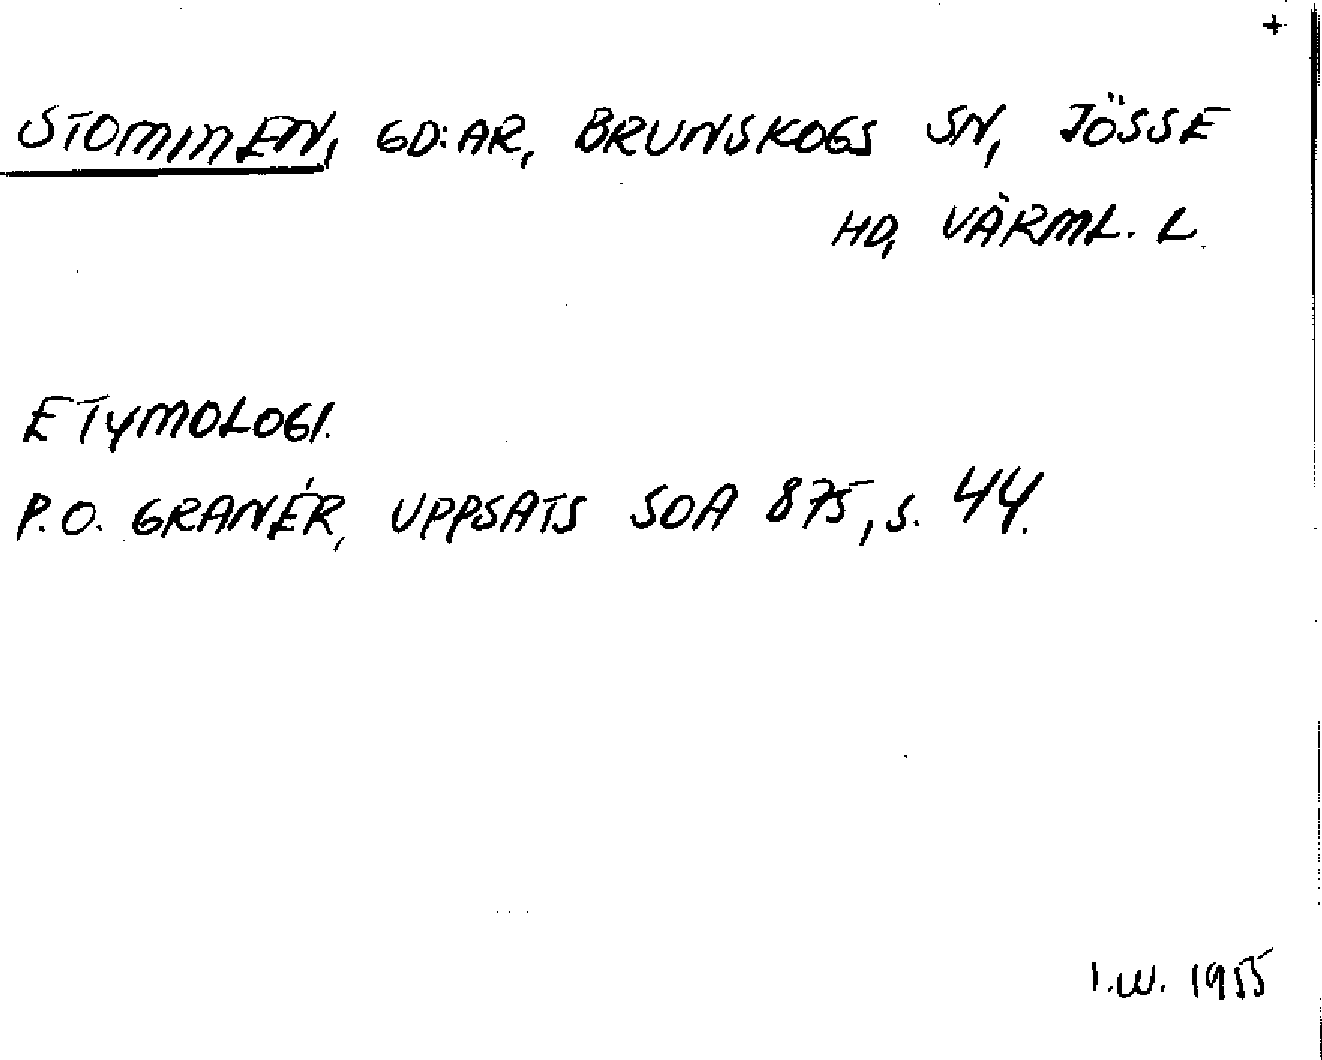 +
STOMMEN, GD:AR, BRUNSKOGS SN, JÖSSE
HD, VÄRML. L.
ETYMOLOGI.
P.O. GRANÉR, UPPSATS SOA 875, S. 44.
I.W. 1955